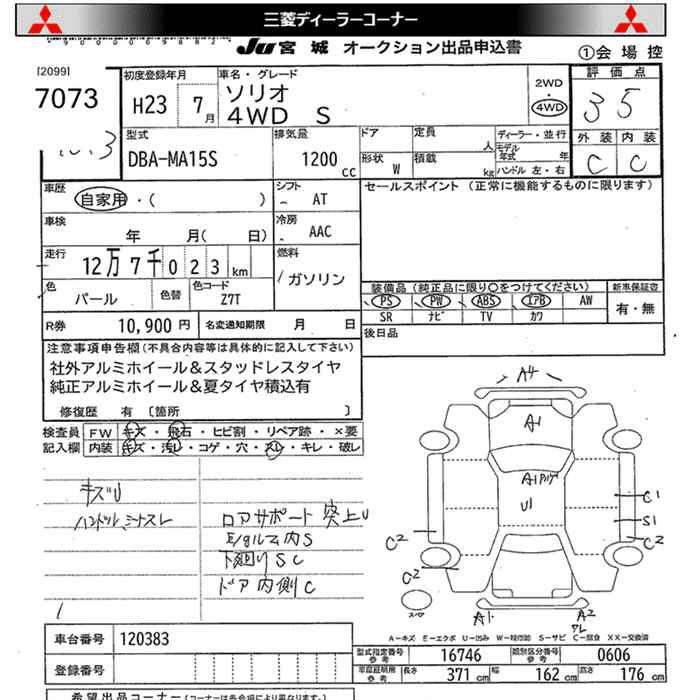 三菱ディーラーコーナー
JU 宮城 オークション出品申込書
①会場控
[2099]
7073
初度登録年月
H23 7月
車名・グレード
ソリオ
4WD S
2WD
・
4WD
評価点
3 5
外装 内装
C C
型式
DBA-MA15S
排気量
1200 cc
ドア
定員 人
形状 W
積載 kg
ディーラー・並行
モデル年式 年
ハンドル 左・右
車歴
自家用・( )
シフト
AT
セールスポイント (正常に機能するものに限ります)
車検
年 月( 日)
冷房
AAC
走行
12万7千023km
燃料
ガソリン
色
パール
色替
色コード
Z7T
装備品(純正品に限り○をつけてください)
新車保証書
PS PW ABS エアB AW
SR ナビ TV カワ
有・無
R券 10,900円
名変通知期限 月 日
後日品
注意事項申告欄(不具合内容等は具体的に記入して下さい)
社外アルミホイール&スタッドレスタイヤ
純正アルミホイール&夏タイヤ積込有
修復歴 有 〔箇所 〕
検査員
記入欄
FW キズ・飛石・ヒビ割・リペア跡・×要
内装 キズ・汚レ・コゲ・穴・スレ・キレ・破レ
キズU
ロアサポート突上U
下廻りSC
ドア内側C
A4
A1
U1
C1
S1
C2
C2
C2
A1
A2
A-キズ E-エクボ U-凹み W-補修跡 S-サビ C-腐食 XX-交換済
車台番号 120383
登録番号
型式指定番号 参考 16746
類別区分番号 参考 0606
長さ 371 cm
幅 162 cm
高さ 176 cm
希望出品コーナー